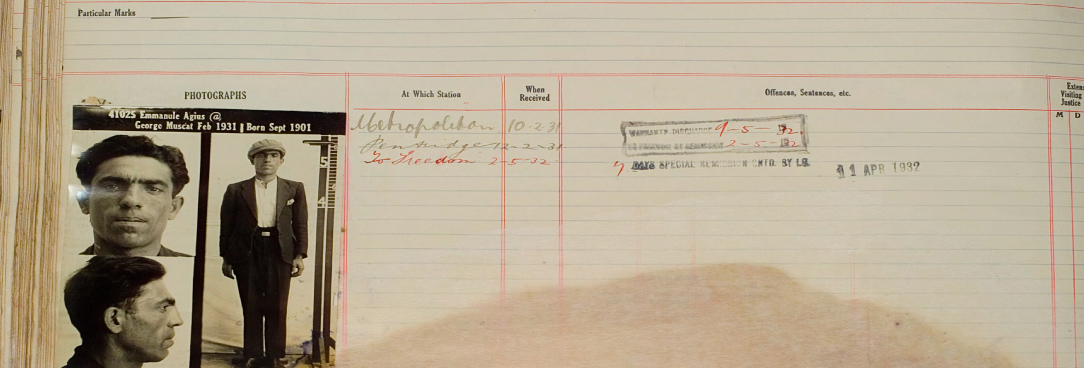 Particular Marks
PHOTOGRAPHS
At Which Station
When
Received
Offences, Sentences, etc.
Exten
Visiting
Justice
M D
41025 Emmanule Agius @
George Muscat Feb 1931 Born Sept 1901
Metropolitan 10-2-31
Pentridge 12-2-31
To Freedom 2-5-32
WARRANTS DISCHARGE 9-5-32
TO FREEDOM BY REMISSION 2-5-32
7 DAYS SPECIAL REMISSION GNTD. BY I.G. 11 APR 1932
5
4